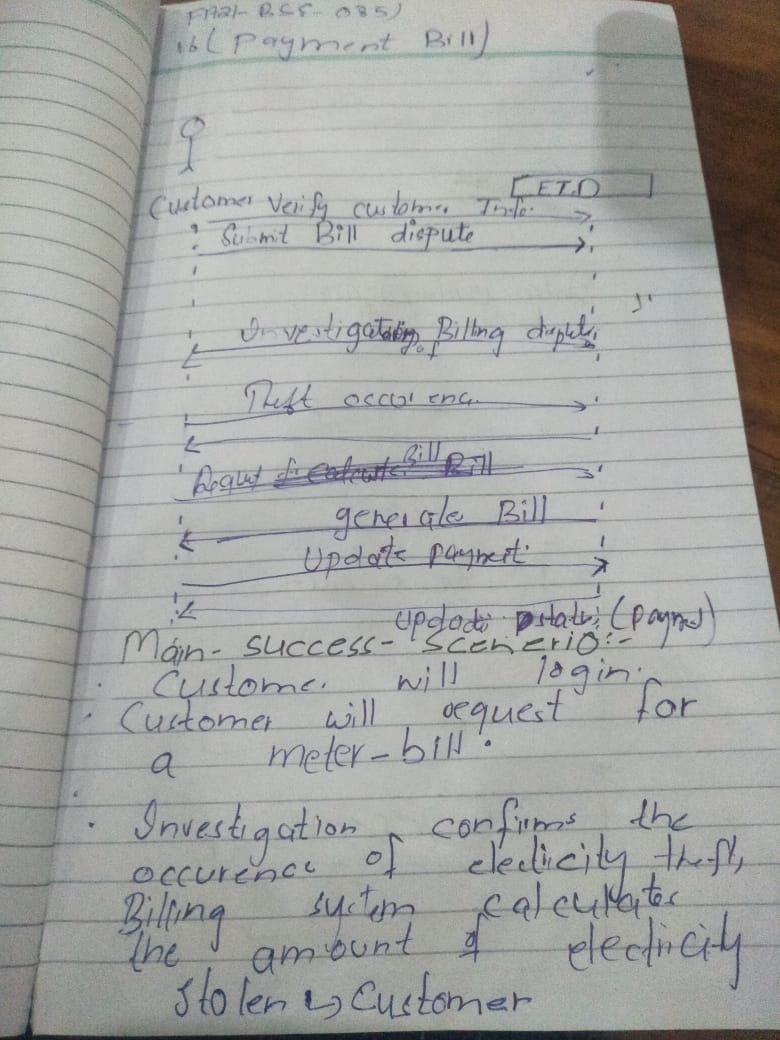 FA21-BSE-085)
16( Payment Bill)
ETD
Customer Verify customer Info.
Submit Bill dispute
Investigating Billing dispute
Theft occurence
Request Bill
generate Bill
Update payment
update status (payment)
Main-success-scenerio:-
Customer will login.
Customer will request for
a meter-bill.
Investigation confirms the
occurence of electricity theft,
Billing system calculates
the amount of electricity
stolen by Customer